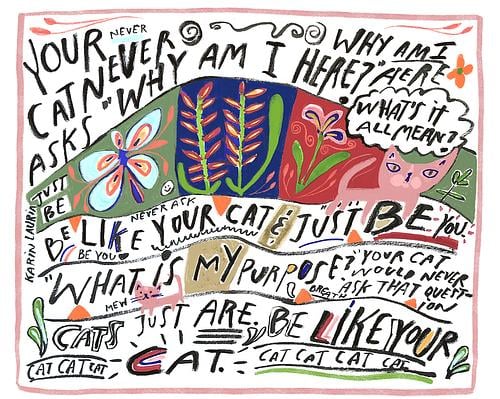 YOUR NEVER
CAT NEVER
ASKS "WHY AM I HERE?"
WHY AM I
HERE
WHAT'S IT
ALL MEAN?
JUST
BE
BE LIKE NEVER ASK YOUR CAT & "JUST" BE YOU
BE YOU
KARIN LAURIA
"WHAT IS MY PURPOSE?" "YOUR CAT
WOULD NEVER
ASK THAT QUEST-
ION
MEW
BREATH
CATS JUST ARE. BE LIKE YOUR
CAT CAT CAT CAT. CAT CAT CAT CAT